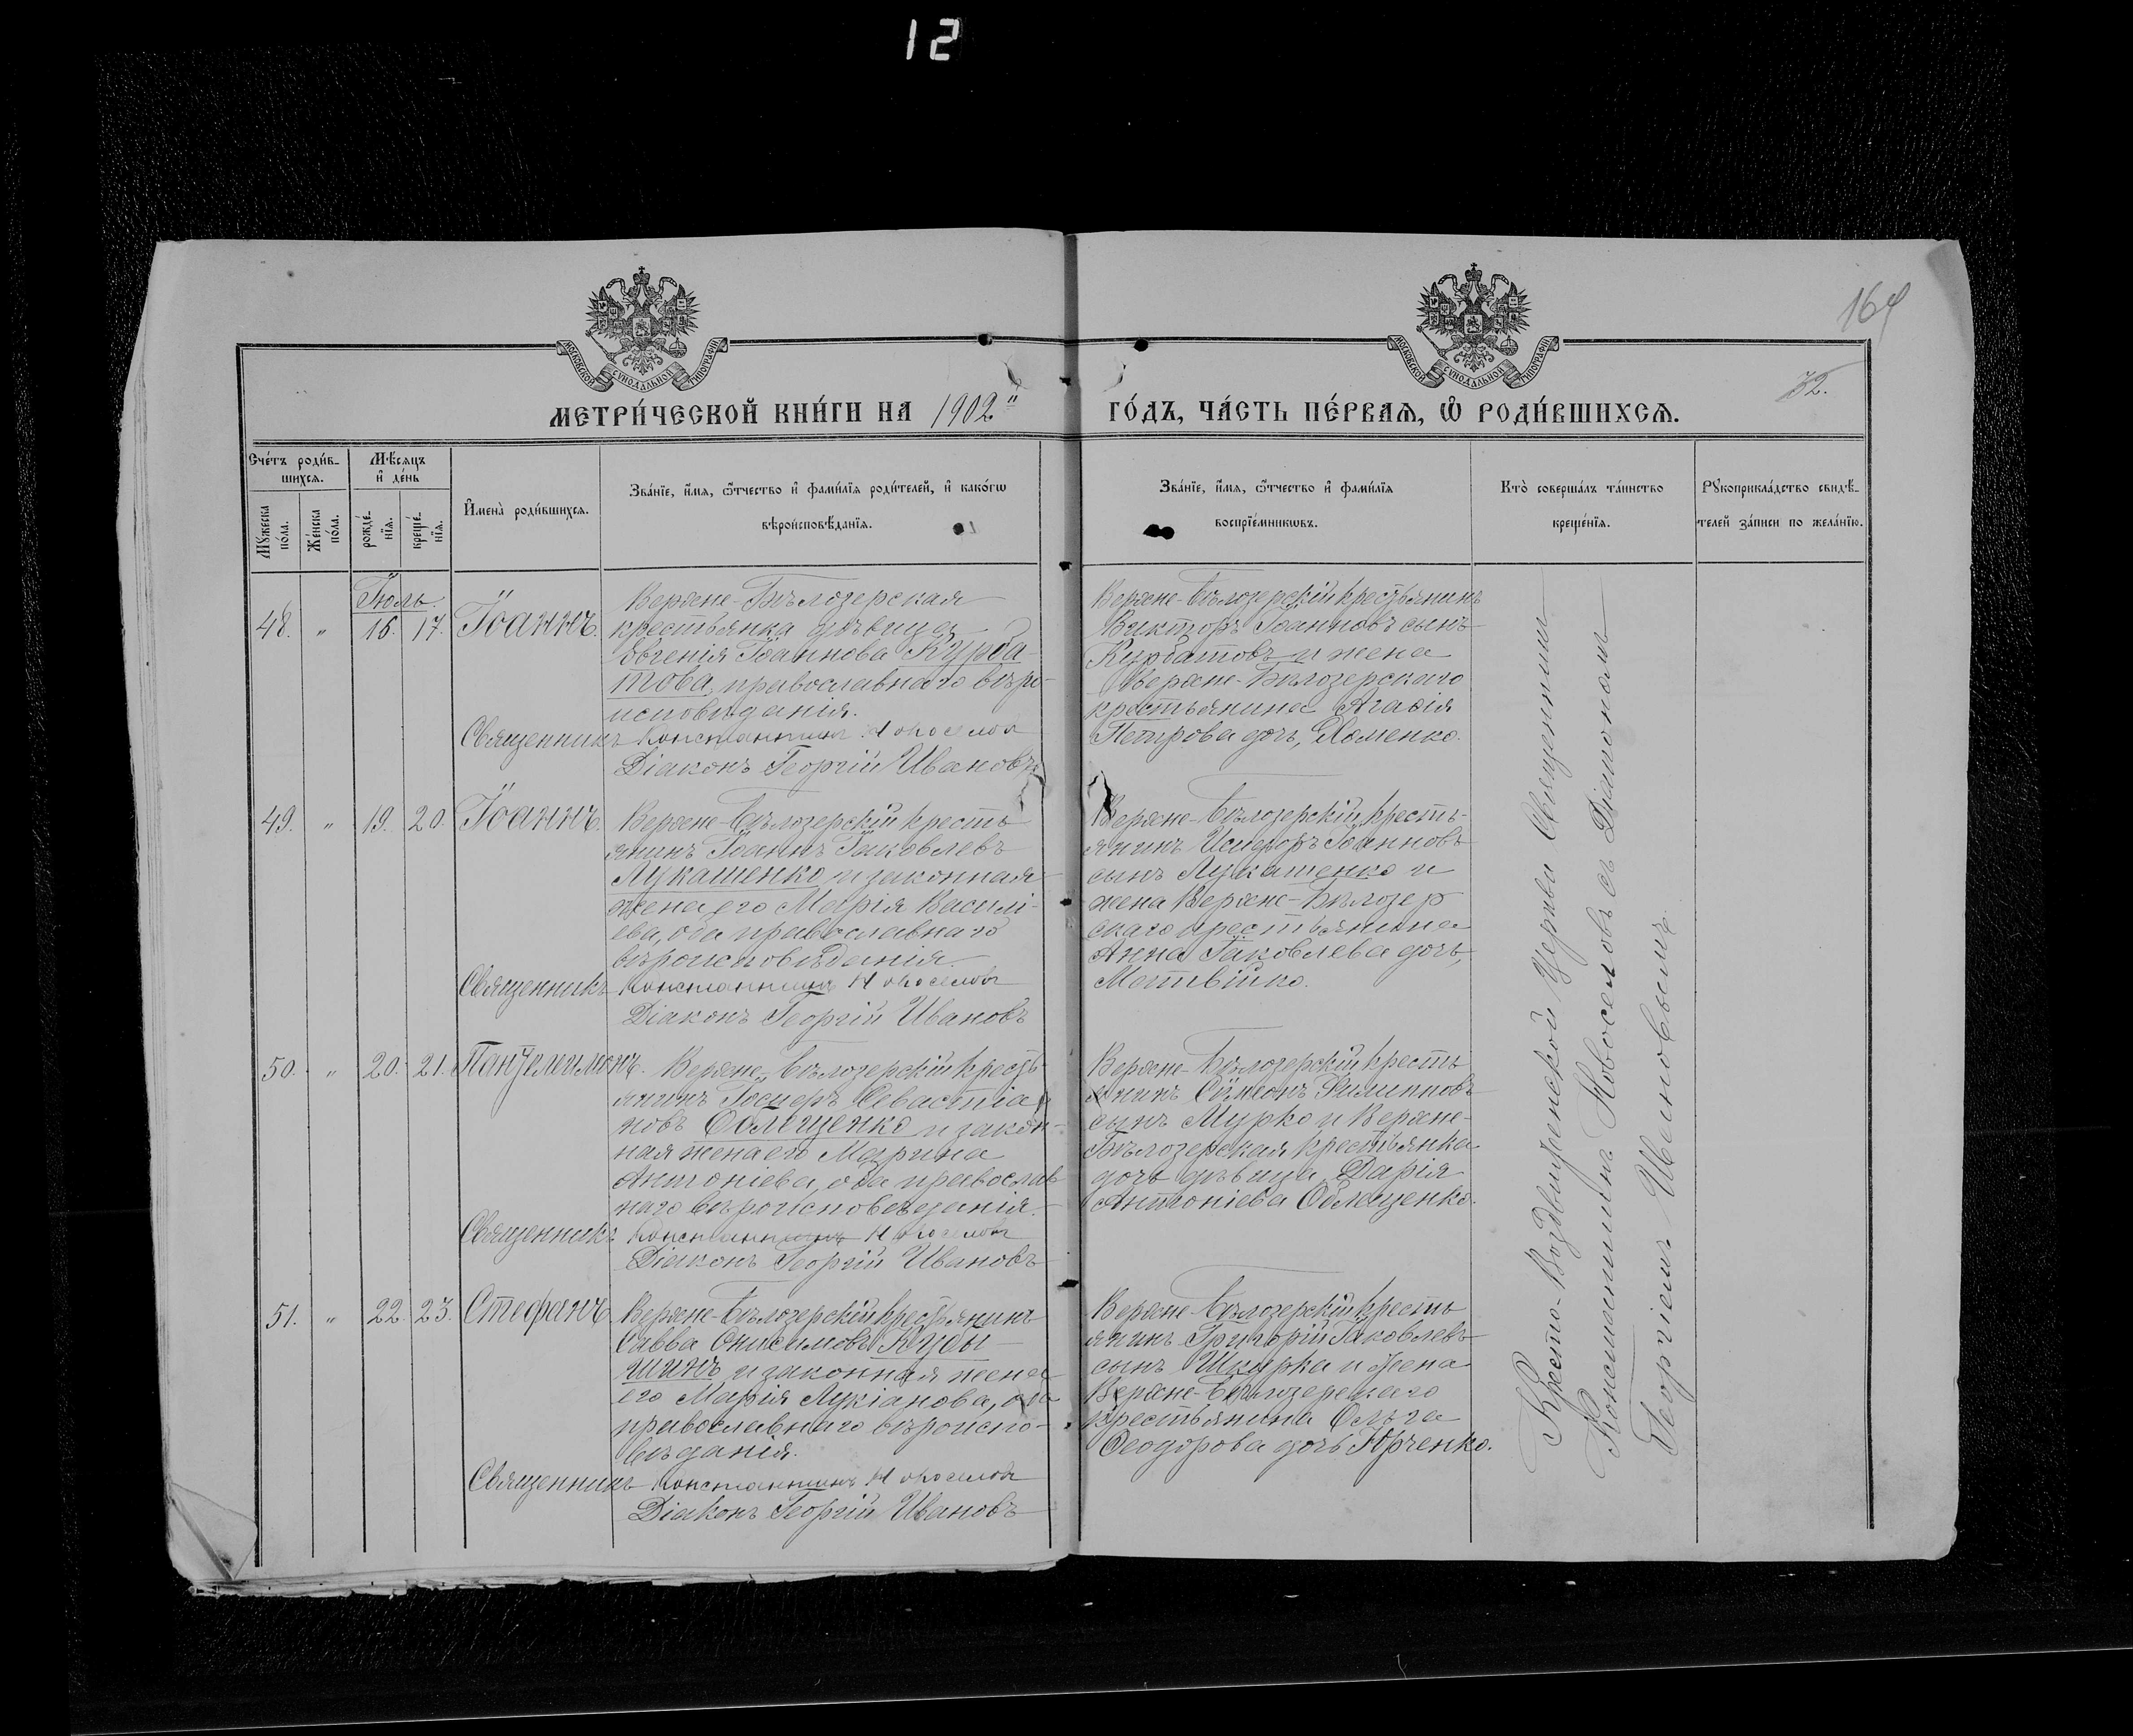 12
164
32.
МОСКОВСКОЙ СУНОДАЛЬНОЙ ТИПОГРАФІИ
МОСКОВСКОЙ СУНОДАЛЬНОЙ ТИПОГРАФІИ
МЕТРИ́ЧЕСКОЙ КНИ́ГИ НА 1902й
ГО́ДЪ, ЧА́СТЬ ПЕ́РВАѦ, Ѡ҆ РОДИ́ВШИХСѦ.
Сче́тъ роди́в-
шихсѧ.
Мѣ́сѧцъ
и҆ де́нь
Мꙋ́жеска
по́ла.
Же́нска
по́ла.
рожде́-
нїѧ.
креще́-
нїѧ.
И҆мена̀ роди́вшихсѧ.
Зва́нїе, и҆́мѧ, ѻ҆́тчество и҆ фами́лїѧ роди́телей, и҆ како́гѡ
вѣроисповѣ́данїѧ.
Зва́нїе, и҆́мѧ, ѻ҆́тчество и҆ фами́лїѧ
воспрїе́мникѡвъ.
Кто̀ соверша́лъ та́инство
креще́нїѧ.
Рꙋкоприкла́дство свидѣ́-
телей за́писи по жела́нїю.
Іюль
48. " 16. 17. Іоаннъ.
Верхне-Бѣлозерская
крестьянка дѣвица
Евгенія Іоаннова Курба-
това, православнаго вѣро-
исповѣданія.
Священникъ Константинъ Новоселовъ
Діаконъ Георгій Ивановъ
Верхне-Бѣлозерскій крестьянинъ
Викторъ Іоанновъ сынъ
Курбатовъ и жена
Верхне-Бѣлозерскаго
крестьянина Агафія
Петрова дочь, Хоменко.
49. " 19. 20. Іоаннъ.
Верхне-Бѣлозерскій кресть
янинъ Іоаннъ Іаковлевъ
Лукашенко и законная
жена его Марія Василі-
ева, оба православнаго
вѣроисповѣданія.
Священникъ Константинъ Новоселовъ
Діаконъ Георгій Ивановъ
Верхне-Бѣлозерскій кресть-
янинъ Исидоръ Іоанновъ
сынъ Лукашенко и
жена Верхне-Бѣлозер
скаго крестьянина
Анна Іаковлева дочь,
Матвійко.
50. " 20. 21. Пантелеимонъ.
Верхне-Бѣлозерскій кресть
янинъ Іосифъ Севастіа
новъ Облещенко и закон-
ная жена его Марина
Антоніева, оба православ
наго вѣроисповѣданія.
Священникъ Константинъ Новоселовъ
Діаконъ Георгій Ивановъ
Верхне-Бѣлозерскій кресть
янинъ Сѵмеонъ Филипповъ
сынъ Мурко и Верхне-
Бѣлозерская крестьянка
дочь дѣвица Дарія
Антоніева Облещенко.
51. " 22. 23. Стефанъ.
Верхне-Бѣлозерскій крестьянинъ
Савва Онисимовъ Кубы-
шинъ и законная жена
его Марія Лукіанова, оба
православнаго вѣроиспо-
вѣданія.
Священникъ Константинъ Новоселовъ
Діаконъ Георгій Ивановъ
Верхне-Бѣлозерскій кресть
янинъ Григорій Іаковлевъ
сынъ Шкурка и жена
Верхне-Бѣлозерскаго
крестьянина Ольга
Ѳеодорова дочь Юрченко.
Кресто-Воздвиженской Церкви Священникомъ
Константиномъ Новоселовъ съ Діакономъ
Георгіемъ Ивановымъ.